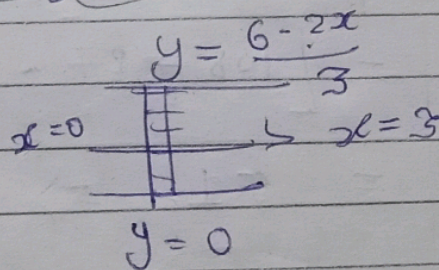 y = (6 - 2x)/3
x = 0
x = 3
y = 0